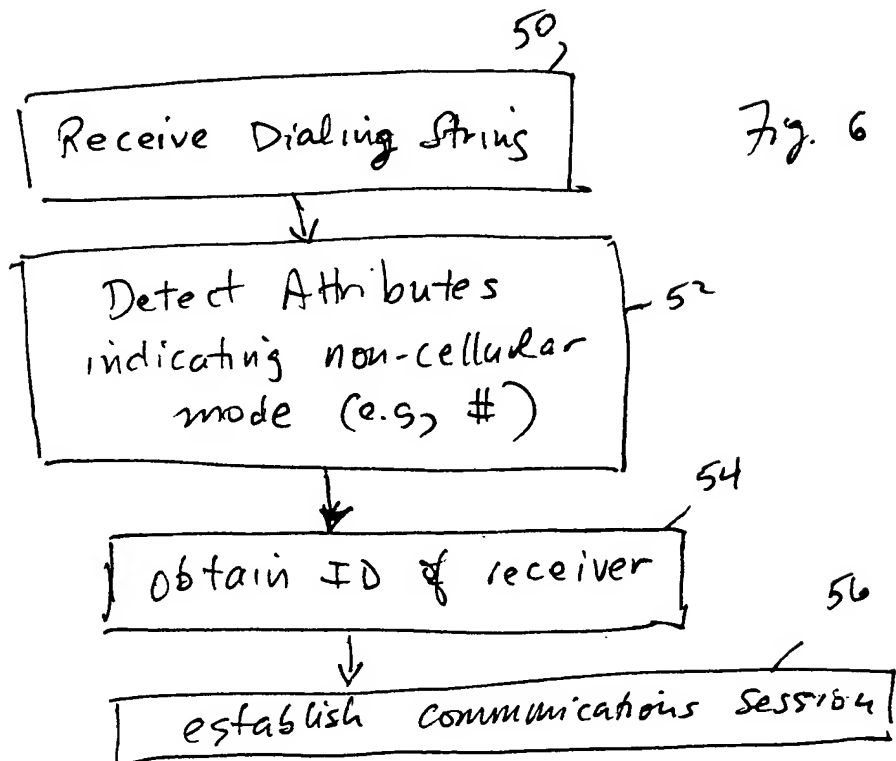 50
Receive Dialing String
Fig. 6
Detect Attributes
indicating non-cellular
mode (e.g, #)
52
54
obtain ID of receiver
56
establish communications session